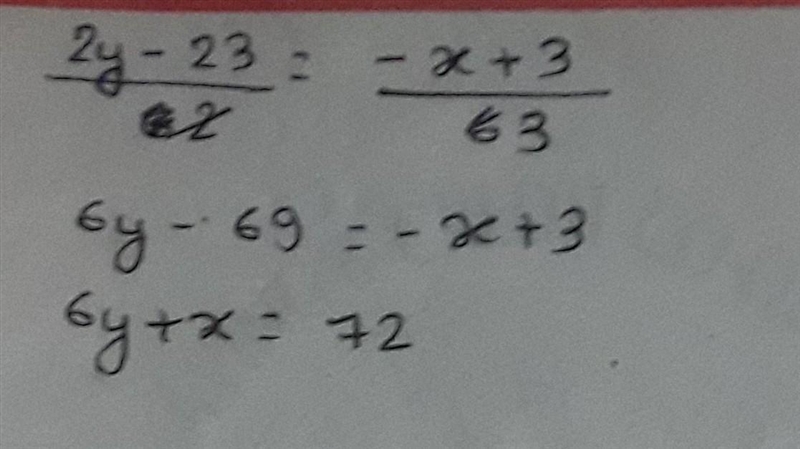 2y - 23 = - x + 3
2 6 3
6y - 69 = - x + 3
6y + x = 72